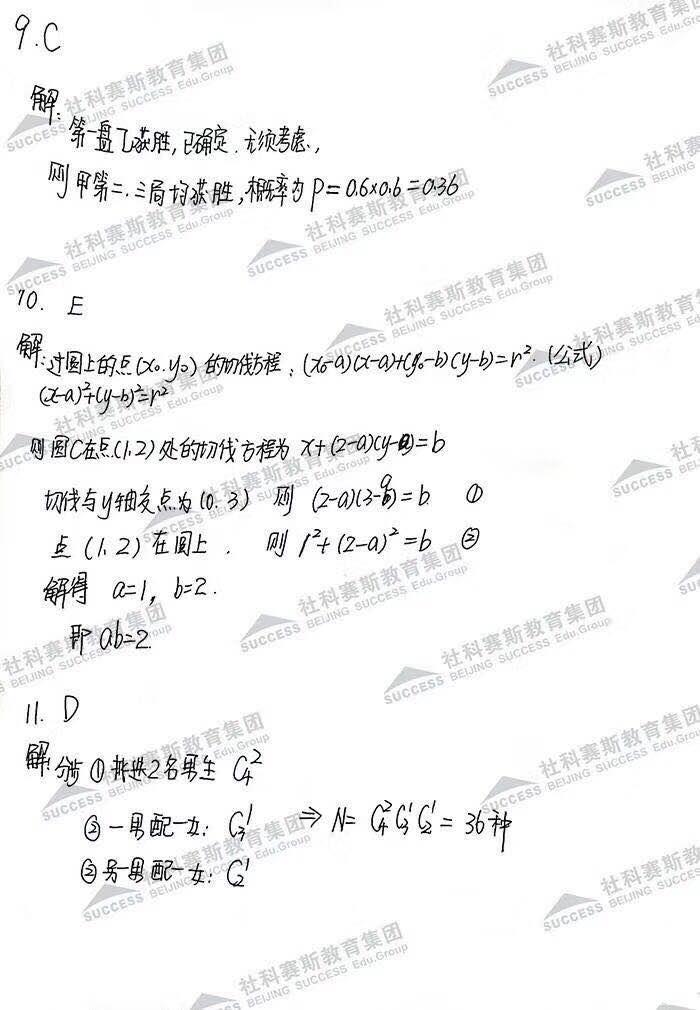 9. C
解:
第一盘乙获胜,已确定.无须考虑,
则甲第二.三局均获胜,概率为 P=0.6×0.6=0.36
10. E
解:过圆上的点(x₀,y₀)的切线方程:(x₀-a)(x-a)+(y₀-b)(y-b)=r².(公式)
(x-a)²+(y-b)²=r²
则圆C在点(1,2)处的切线方程为 x+(2-a)(y-a)=b
切线与y轴交点为(0.3) 则 (2-a)(3-a)=b ①
点(1,2)在圆上. 则 1²+(2-a)²=b ②
解得 a=1, b=2.
即 ab=2.
11. D
解:分步 ① 挑选2名男生 C₄²
② 一男配一女: C₃¹ ⇒ N= C₄² C₃¹ C₂¹ = 36种
③ 另一男配一女: C₂¹
社科赛斯教育集团
SUCCESS BEIJING SUCCESS Edu.Group